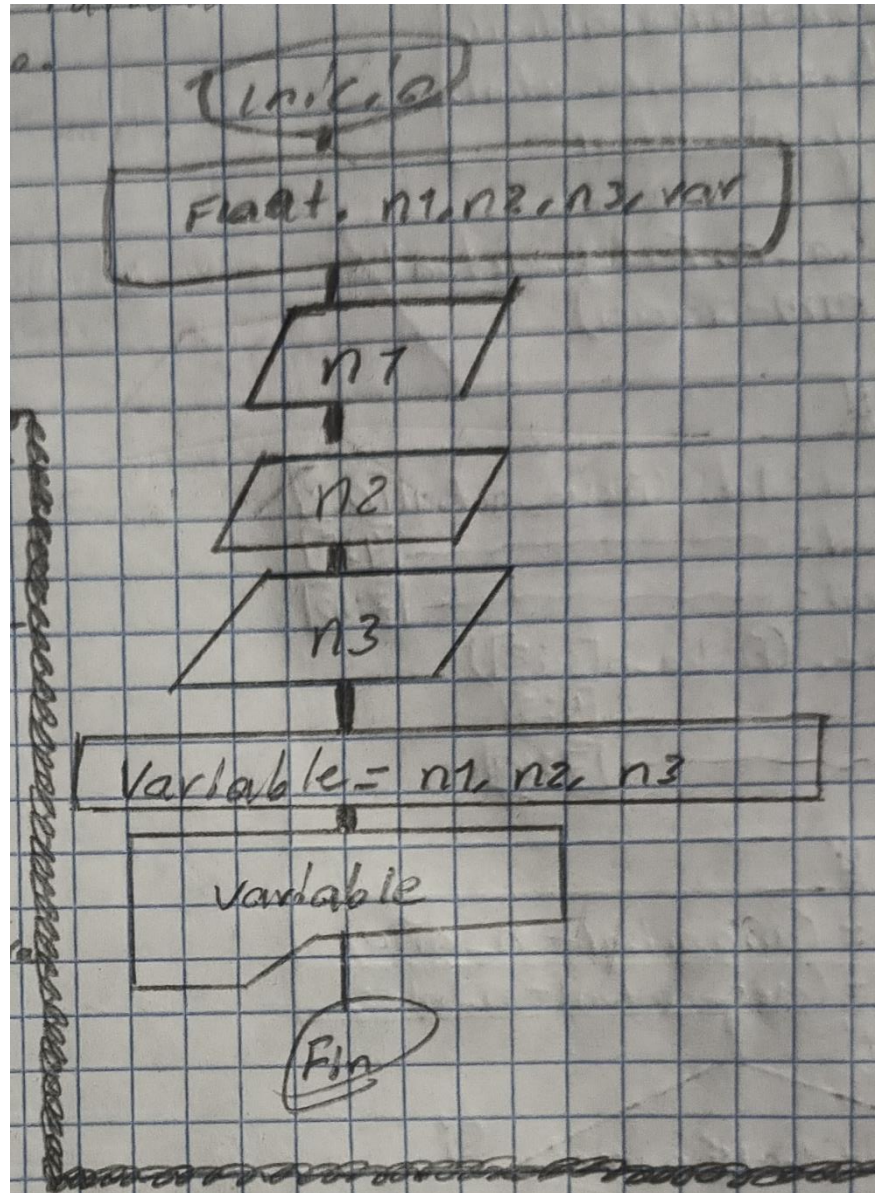 Inicio
Float. n1, n2, n3, var
n1
n2
n3
Variable = n1, n2, n3
Variable
Fin